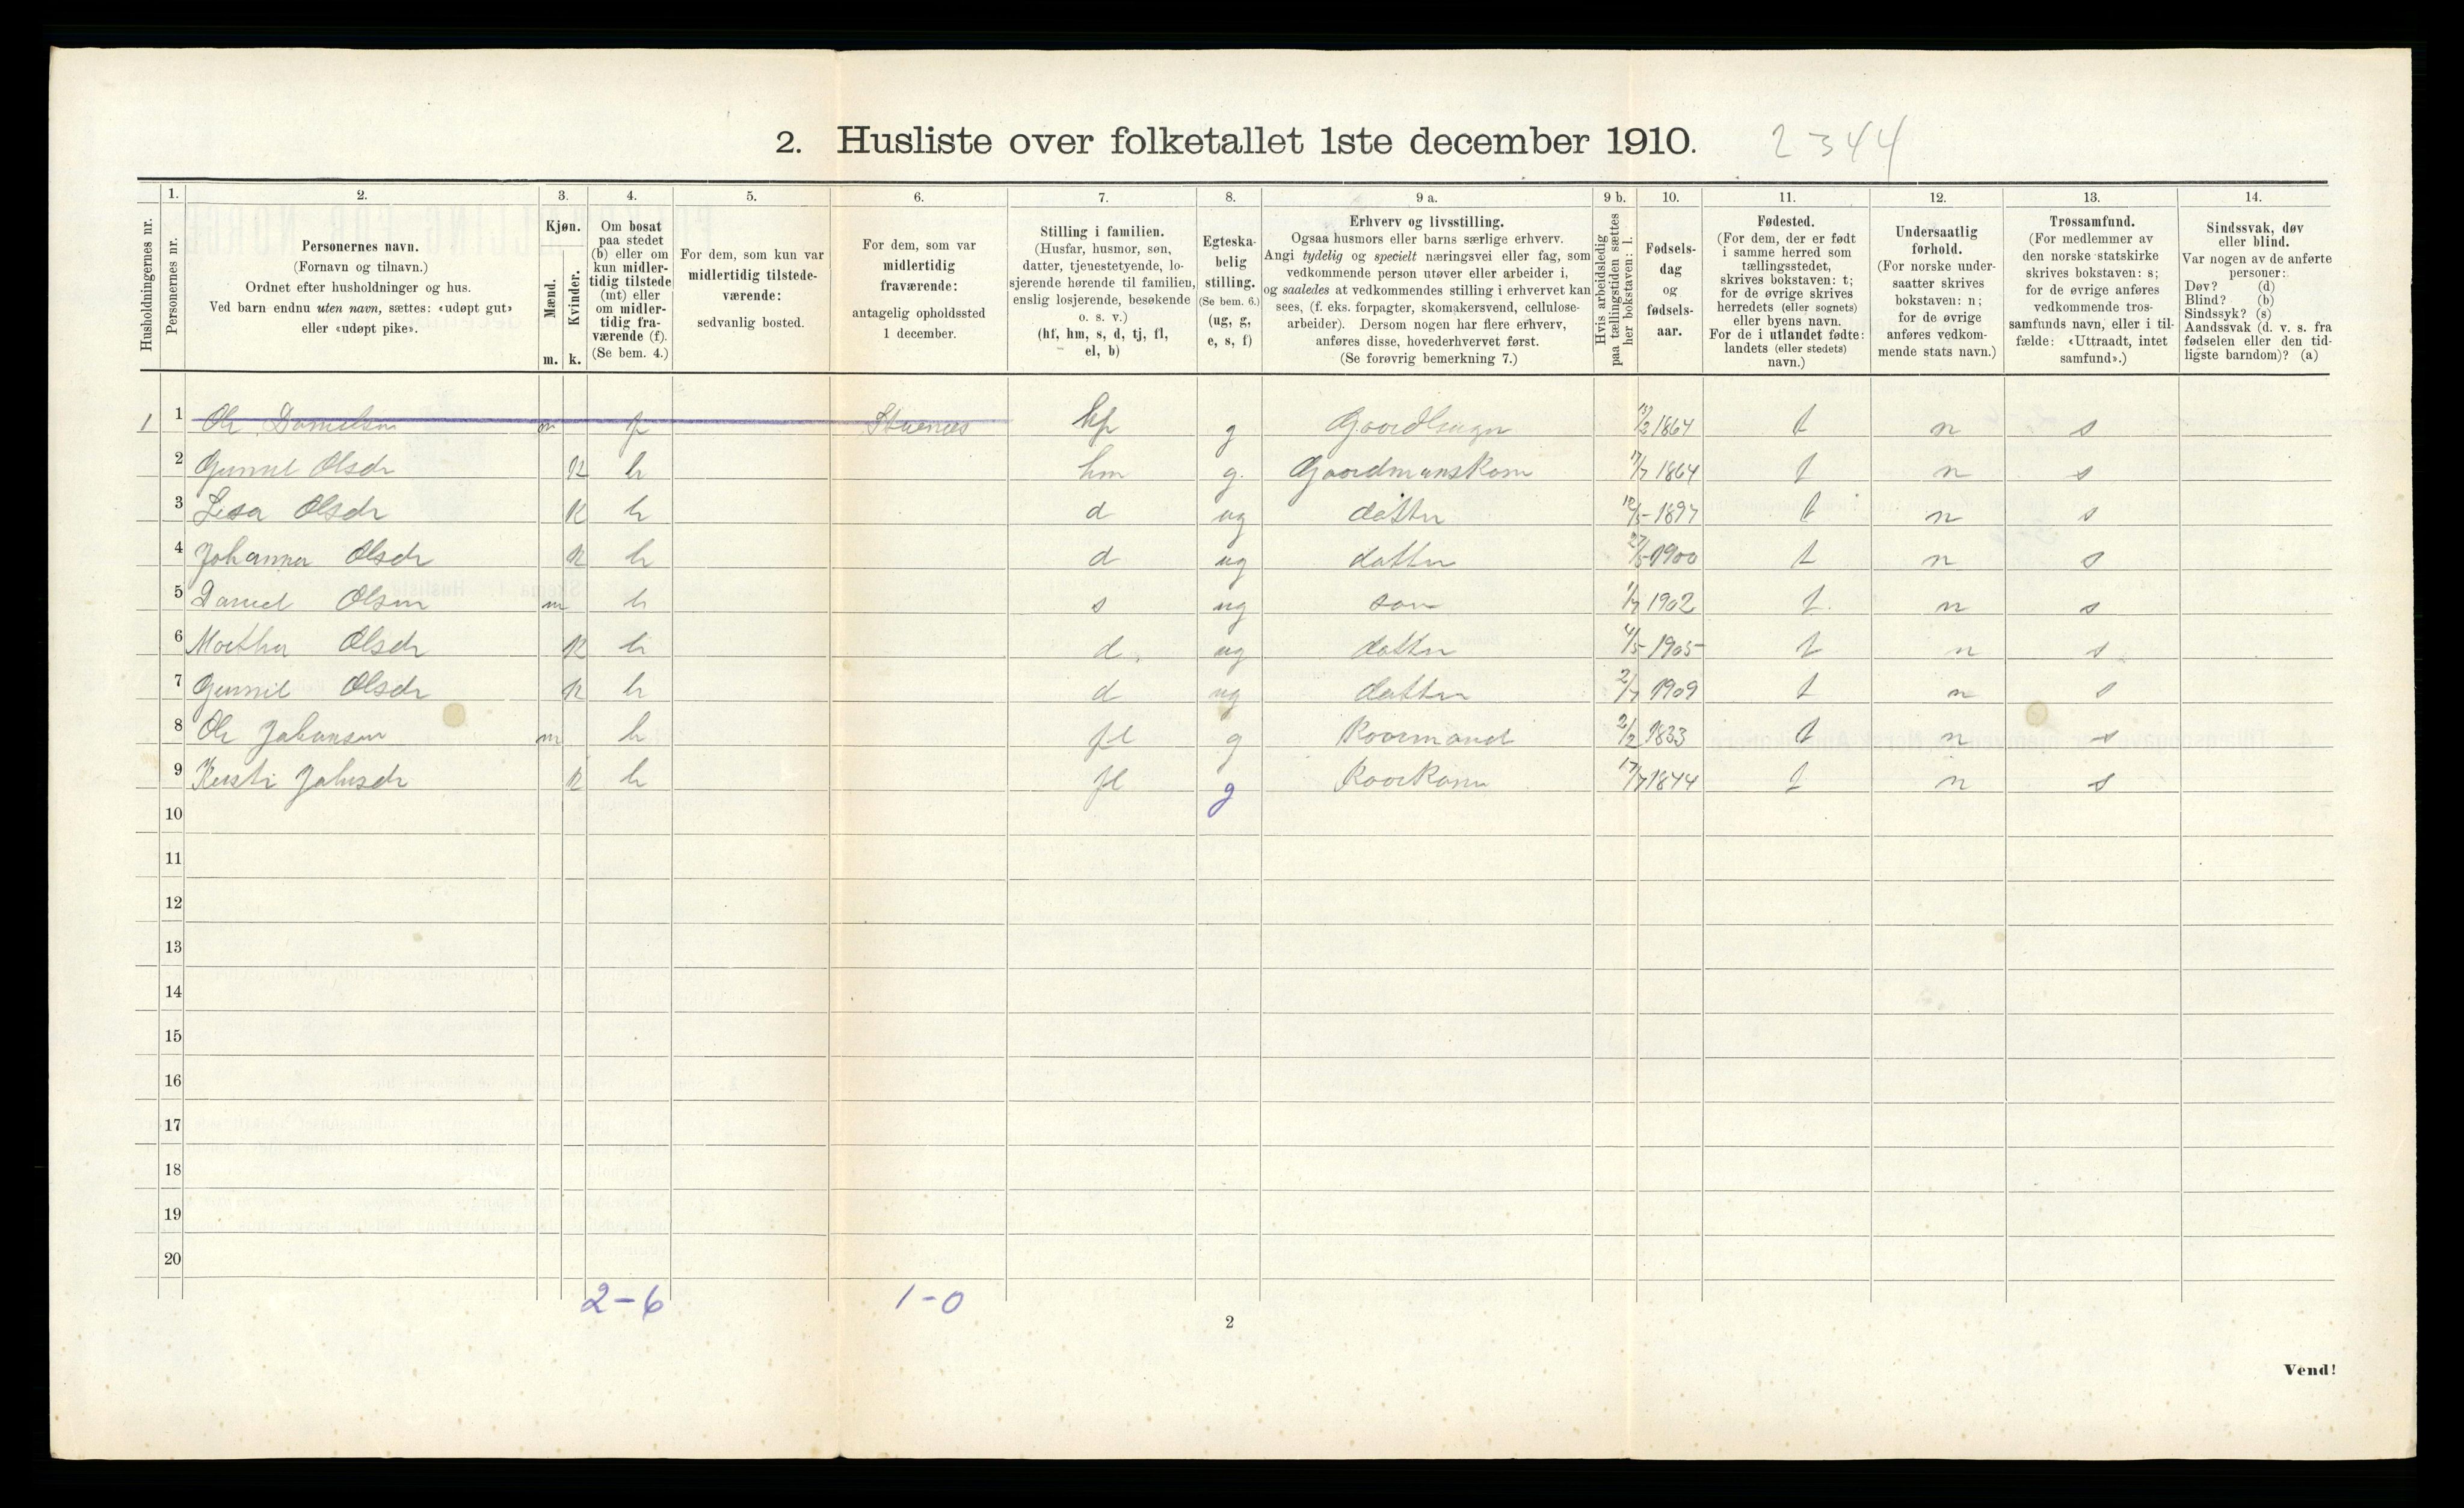 2. Husliste over folketallet 1ste december 1910. 2344
1. 2. 3. 4. 5. 6. 7. 8. 9 a. 9 b. 10. 11. 12. 13. 14.
Husholdningernes nr.
Personernes nr.
Personernes navn.
(Fornavn og tilnavn.)
Ordnet efter husholdninger og hus.
Ved barn endnu uten navn, sættes: «udøpt gut»
eller «udøpt pike».
Kjøn.
Mænd.
Kvinder.
m. k.
Om bosat
paa stedet
(b) eller om
kun midler-
tidig tilstede
(mt) eller
om midler-
tidig fra-
værende (f).
(Se bem. 4.)
For dem, som kun var
midlertidig tilstede-
værende:
sedvanlig bosted.
For dem, som var
midlertidig
fraværende:
antagelig opholdssted
1 december.
Stilling i familien.
(Husfar, husmor, søn,
datter, tjenestetyende, lo-
sjerende hørende til familien,
enslig losjerende, besøkende
o. s. v.)
(hf, hm, s, d, tj, fl,
el, b)
Egteska-
belig
stilling.
(Se bem. 6.)
(ug, g,
e, s, f)
Erhverv og livsstilling.
Ogsaa husmors eller barns særlige erhverv.
Angi tydelig og specielt næringsvei eller fag, som
vedkommende person utøver eller arbeider i,
og saaledes at vedkommendes stilling i erhvervet kan
sees, (f. eks. forpagter, skomakersvend, cellulose-
arbeider). Dersom nogen har flere erhverv,
anføres disse, hovederhvervet først.
(Se forøvrig bemerkning 7.)
Hvis arbeidsledig
paa tællingstiden sættes
her bokstaven: l.
Fødsels-
dag
og
fødsels-
aar.
Fødested.
(For dem, der er født
i samme herred som
tællingsstedet,
skrives bokstaven: t;
for de øvrige skrives
herredets (eller sognets)
eller byens navn.
For de i utlandet fødte:
landets (eller stedets)
navn.)
Undersaatlig
forhold.
(For norske under-
saatter skrives
bokstaven: n;
for de øvrige
anføres vedkom-
mende stats navn.)
Trossamfund.
(For medlemmer av
den norske statskirke
skrives bokstaven: s;
for de øvrige anføres
vedkommende tros-
samfunds navn, eller i til-
fælde: «Uttraadt, intet
samfund».)
Sindssvak, døv
eller blind.
Var nogen av de anførte
personer:
Døv? (d)
Blind? (b)
Sindssyk? (s)
Aandssvak (d. v. s. fra
fødselen eller den tid-
ligste barndom)? (a)
1 1 Ole Danielsen m f hf g 13/2 1864 t n s
2 Gunnil Olsdr k b hm g. Gaardmanskone 17/7 1864 t n s
3 Lisa Olsdr k b d ug datter 10/5-1897 t n s
4 Johanna Olsdr k b d ug datter 27/5-1900 t n s
5 Daniel Olsen m b s ug søn 1/7 1902 t n s
6 Martha Olsdr k b d ug datter 4/5-1905 t n s
7 Gunnil Olsdr k b d ug datter 2/7 1909 t n s
8 Ole Johansen m b fl g Kaarmand 2/2 1833 t n s
9 Kirsti Johnsdr k b fl g Kaarkone 17/7 1844 t n s
10
11
12
13
14
15
16
17
18
19
20
2-6 1-0
2
Vend!